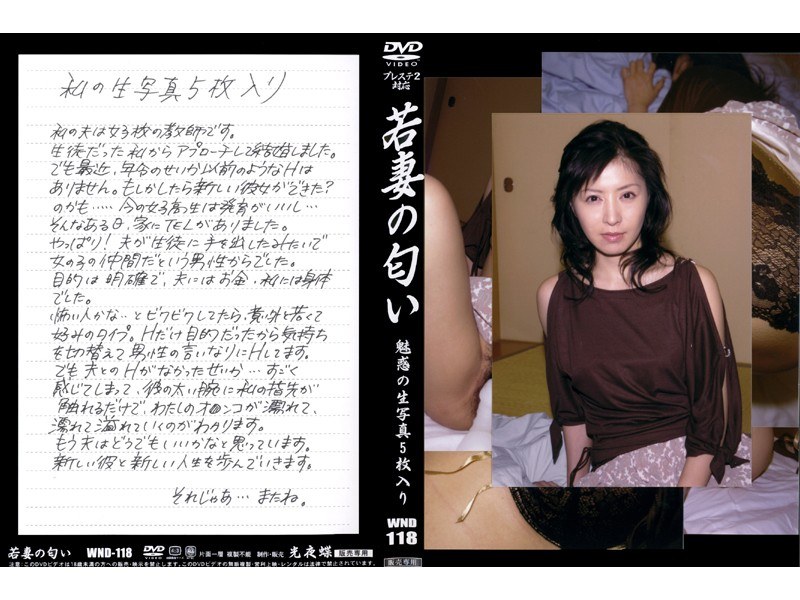 私の生写真5枚入り
私の夫は女子校の教師です。
生徒だった私からアプローチして結婚しました。
でも最近、年令のせいか以前のようなHは
ありません。もしかしたら新しい彼女ができた?
のかも…… 今の女子高生は発育がいいし…
そんなある日、家にTELがありました。
やっぱり! 夫が生徒に手を出したみたいで
女の子の仲間だという男性からでした。
目的は明確で、夫にはお金、私には身体
でした。
怖い人かな…とビクビクしてたら、意外と若くて
好みのタイプ。Hだけ目的だったから気持ち
を切替えて男性の言いなりにHしてます。
でも夫とのHがなかったせいか…すごく
感じてしまって、彼の太い腕に私の指先が
触れるだけで、わたしのオ○ンコが濡れて、
濡れて溢れていくのがわかります。
もう夫はどうでもいいかなと思っています。
新しい彼と新しい人生を歩んでいきます。
それじゃあ…またね。
若妻の匂い WND-118 DVD VIDEO 4:3 片面一層 複製不能 制作・販売 光夜蝶 販売専用
注意:このDVDビデオは18歳未満の方への販売・展示を禁止します。このDVDビデオの無断複製・営利上映・レンタルは法律で禁止されています。
DVD
VIDEO
プレステ2
対応
若妻の匂い
魅惑の生写真5枚入り
WND
118
販売専用